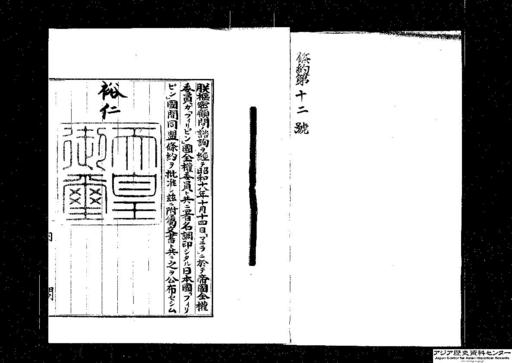 條約第十二號
朕樞密顧問ノ諮詢ヲ經テ昭和十八年十月十四日「マニラ」ニ於テ帝國全權
委員ガ「フィリピン」國全權委員ト共ニ署名調印シタル日本國「フィリ
ピン」國間同盟條約ヲ批准シ茲ニ附屬文書ト共ニ之ヲ公布セシム
裕仁
天皇
御璽
アジア歴史資料センター
Japan Center for Asian Historical Records